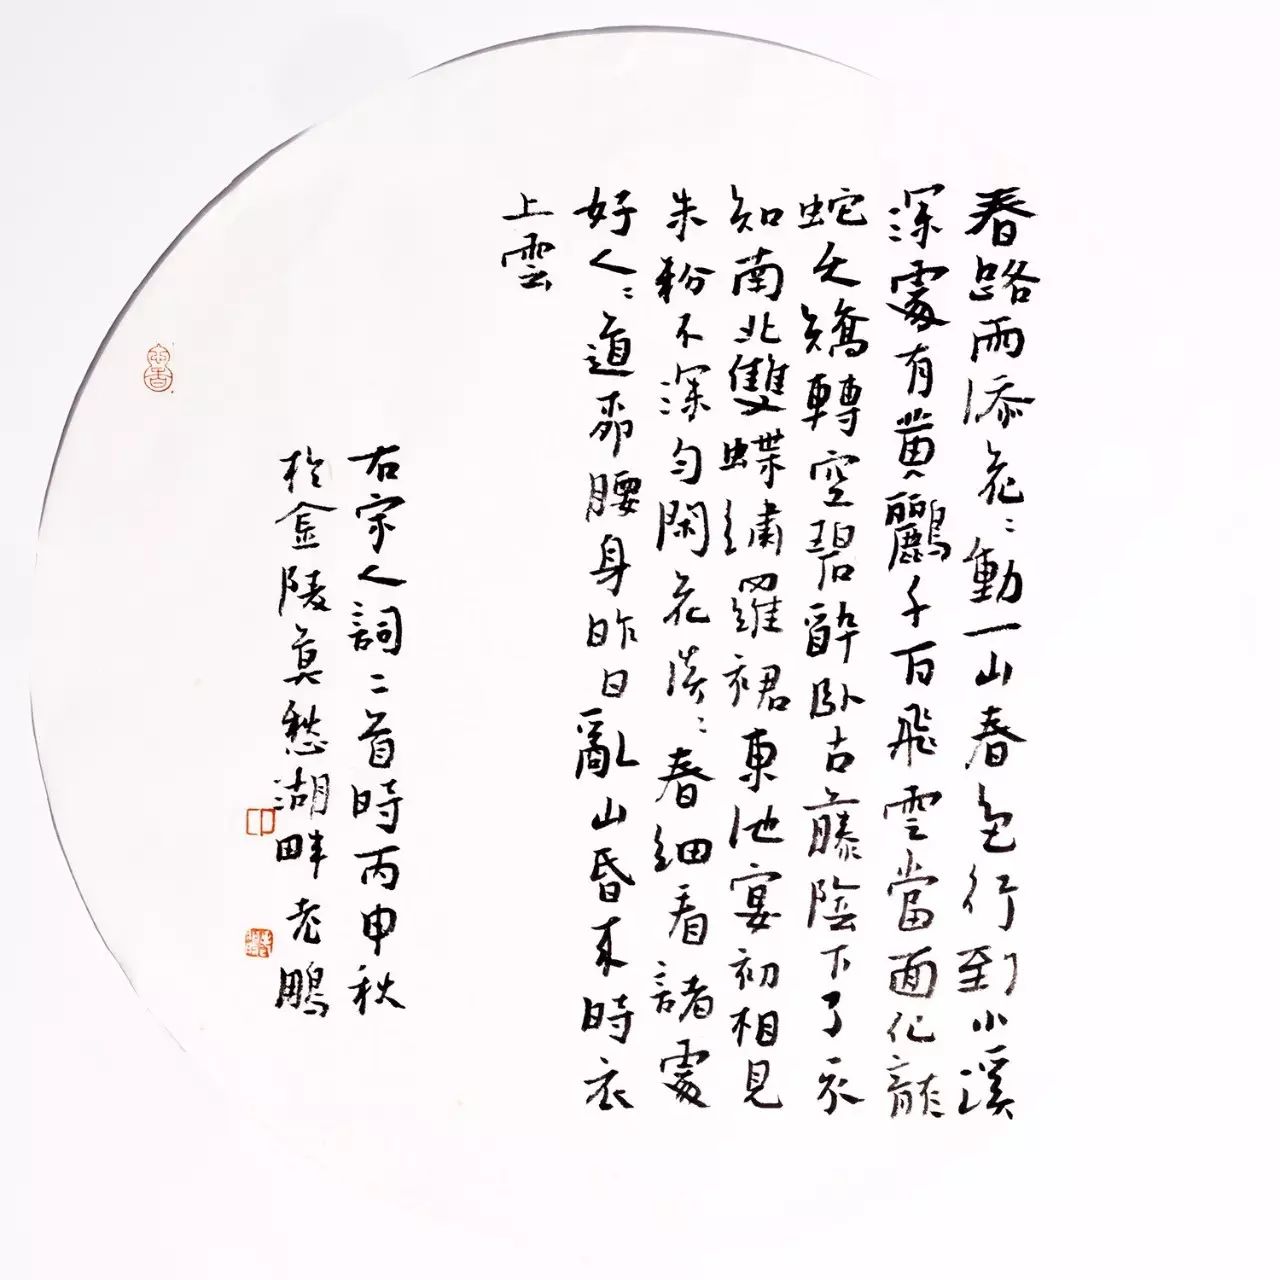 春路雨添花〻動一山春色行到小溪
深處有黄鸝千百飛雲當面化龍
蛇夭矯轉空碧醉卧古藤陰下了不
知南北雙蝶繡羅裙東池宴初相見
朱粉不深匀閑花淡〻春細看諸處
好人〻道柳腰身昨日亂山昏来時衣
上雲
右宋人詞二首時丙申秋
於金陵莫愁湖畔老鵬